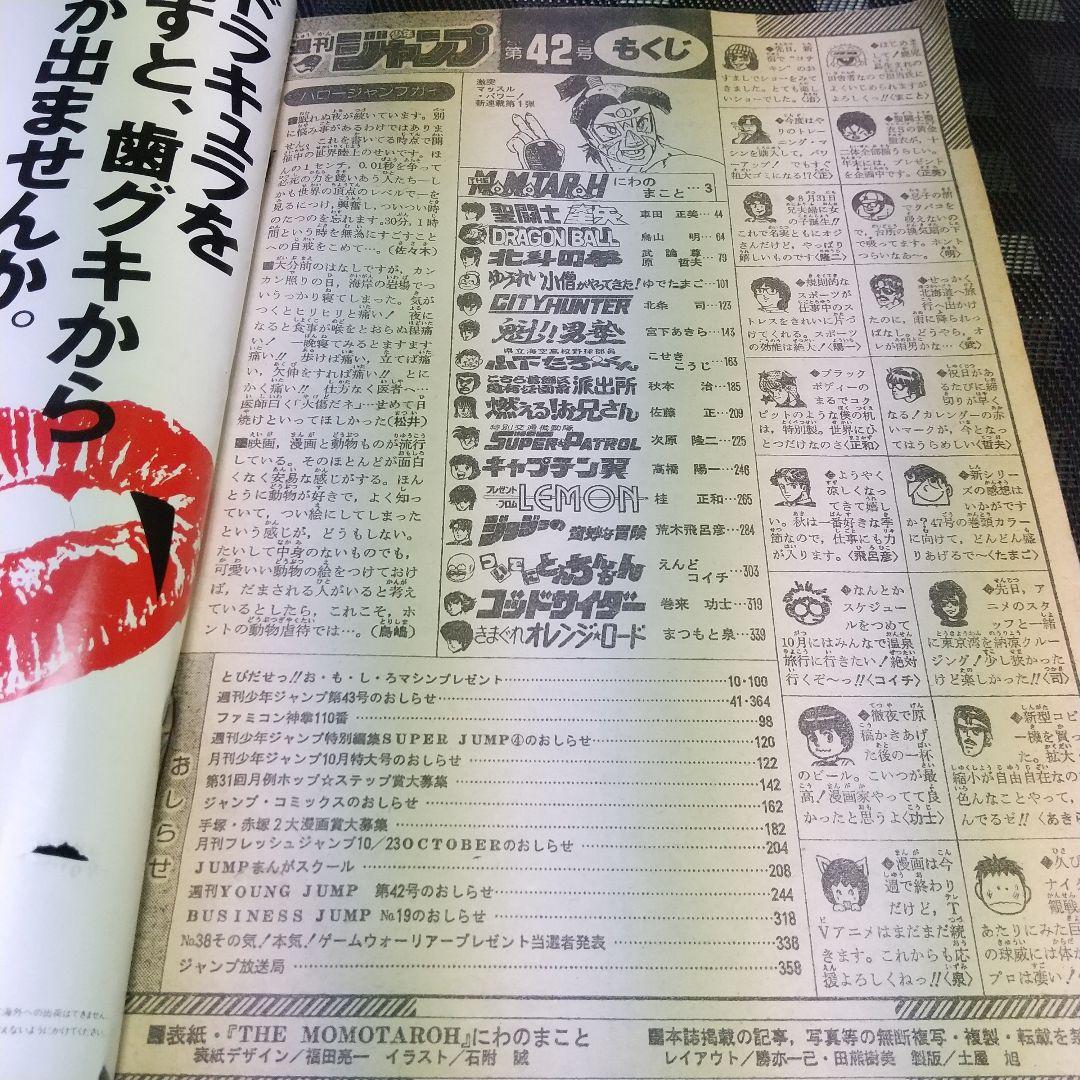 ドラキュラを
すと、歯グキから
か出ませんか。
週刊
少年
ジャンプ
第42号
もくじ
ハロージャンプガイ
■眠れぬ夜が続いています。別
に悩み事があるわけではありま
せん。これを書いてる時点で開
催中の世界陸上のせいです。ほ
んの1センチ、0.01秒を争って
必死の力を競いあう人たち―し
かも世界の頂点のレベルで―を
見るにつけ、興奮し、ついつい時
のたつのを忘れます。30分、1時
間という時を無為にすごすこと
への自戒をこめて…。(佐々木)
■大分前のはなしですが、カン
カン照りの日、海岸の岩場でつ
いうっかり寝てしまった。気が
つくとヒリヒリと痛い! 夜に
なると食事が喉をとおらぬ程痛
い! 一晩寝てみるとますます
痛い!! 歩けば痛い、立てば痛
い、欠伸をすれば痛い!! とに
かく痛い!! 仕方なく医者へ…
医師曰く「火傷だネ」…せめて日
焼けといってほしかった(松井)
■映画、漫画と動物ものが流行
している。そのほとんどが面白
くなく安易な感じがする。ほん
とうに動物が好きで、よく知っ
ていて、つい絵にしてしまった
という感じが、どうもしない。
たいして中身のないものでも、
可愛いい動物の絵をつけておけ
ば、だまされる人がいると考え
ているとしたら、これこそ、ホ
ントの動物虐待では…。(鳥嶋)
激突
マッスル
・パワー!
新連載第1弾
THE MOMOTAROH にわの まこと…3
聖闘士星矢 車田 正美…44
DRAGON BALL 鳥山 明…64
北斗の拳 武論尊 原 哲夫…79
ゆうれい小僧がやってきた! ゆでたまご…101
CITY HUNTER 北条 司…123
魁!!男塾 宮下あきら…143
県立海空高校野球部員
山下たろ〜くん こせき こうじ…163
こちら葛飾区亀有公園前派出所 秋本 治…185
燃える!お兄さん 佐藤 正…209
特別交通機動隊
SUPER PATROL 次原 隆二…225
キャプテン翼 高橋 陽一…246
プレゼント・フロム LEMON 桂 正和…265
ジョジョの奇妙な冒険 荒木飛呂彦…284
ついでにとんちんかん えんど コイチ…303
ゴッドサイダー 巻来 功士…319
きまぐれオレンジ★ロード まつもと泉…339
おしらせ
とびだせっ!!お・も・し・ろマシンプレゼント…10・100
週刊少年ジャンプ第43号のおしらせ…41・364
ファミコン神拳110番…98
週刊少年ジャンプ特別編集SUPER JUMP④のおしらせ…120
月刊少年ジャンプ10月特大号のおしらせ…122
第31回月例ホップ☆ステップ賞大募集…142
ジャンプ・コミックスのおしらせ…162
手塚・赤塚2大漫画賞大募集…182
月刊フレッシュジャンプ10/23OCTOBERのおしらせ…204
JUMPまんがスクール…208
週刊YOUNG JUMP 第42号のおしらせ…244
BUSINESS JUMP No.19のおしらせ…318
No.38その気!本気!ゲームウォーリアープレゼント当選者発表…338
ジャンプ放送局…358
◆8月31日
兄夫婦に女
の子誕生!!
これで名実ともにオジ
さんだけど、やっぱり
嬉しいものです〈隆二〉
◆規則的な
スポーツが
仕事中のス
トレスをきれいに片づ
けてくれる。スポーツ
の効能は絶大!〈陽一〉
◆せっかく
北海道へ旅
行へ出かけ
たのに、雨に降られっ
ぱなし。どうやら、オ
レが雨男かな…〈武〉
◆ブラック
ボディーの
まるでコク
ピットのような僕の机
は、特別製。世界にひ
とつだけなのさ〈正和〉
◆祝日があ
るたびに締
切りが早く
なる!カレンダーの赤
いマークが、今となっ
てはうらめしい〈哲夫〉
◆ようやく
涼しくなっ
てきて嬉し
い。秋は一番好きな季
節なので、仕事にも力
が入ります。〈飛呂彦〉
◆新シリー
ズの感想は
いかがです
か?47号の巻頭カラー
に向けて、どんどん盛
りあげるで〜〈たまご〉
◆なんとか
スケジュー
ルをつめて
10月にはみんなで温泉
旅行に行きたい!絶対
行くぞ〜っ!!〈コイチ〉
◆先日、ア
ニメのスタ
ッフと一緒
に東京湾を納涼クルー
ジング!少し狭かった
けど楽しかった!!〈司〉
◆徹夜で原
稿かきあげ
た後の一杯
のビール。こいつが最
高!漫画家やってて良
かったと思うよ〈功士〉
新型コピ
ー機を買っ
た。拡大
縮小が自由自在なの
色んなことやって、
んでるぜ!!〈あきら
◆漫画は今
週で終わり
だけど、T
Vアニメはまだまだ続
きます。これからも応
援よろしくねっ!!〈泉〉
◆久び
ナイ
観戦
あたりにみた巨
の球威には体か
プロは凄い!
■表紙・『THE MOMOTAROH』にわのまこと
表紙デザイン/福田亮一 イラスト/石附 誠
■本誌掲載の記事,写真等の無断複写・複製・転載を禁
レイアウト/勝亦一己・田熊樹美 製版/土屋 旭
海外への出荷はできません。
えないようにかけてください。